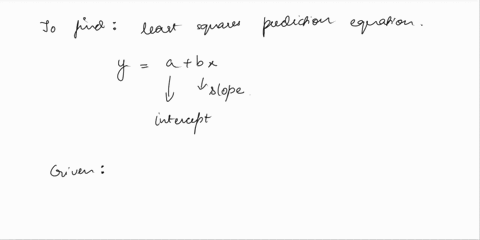 To find: least squares prediction equation.
y = a + bx
slope
intercept
Given: